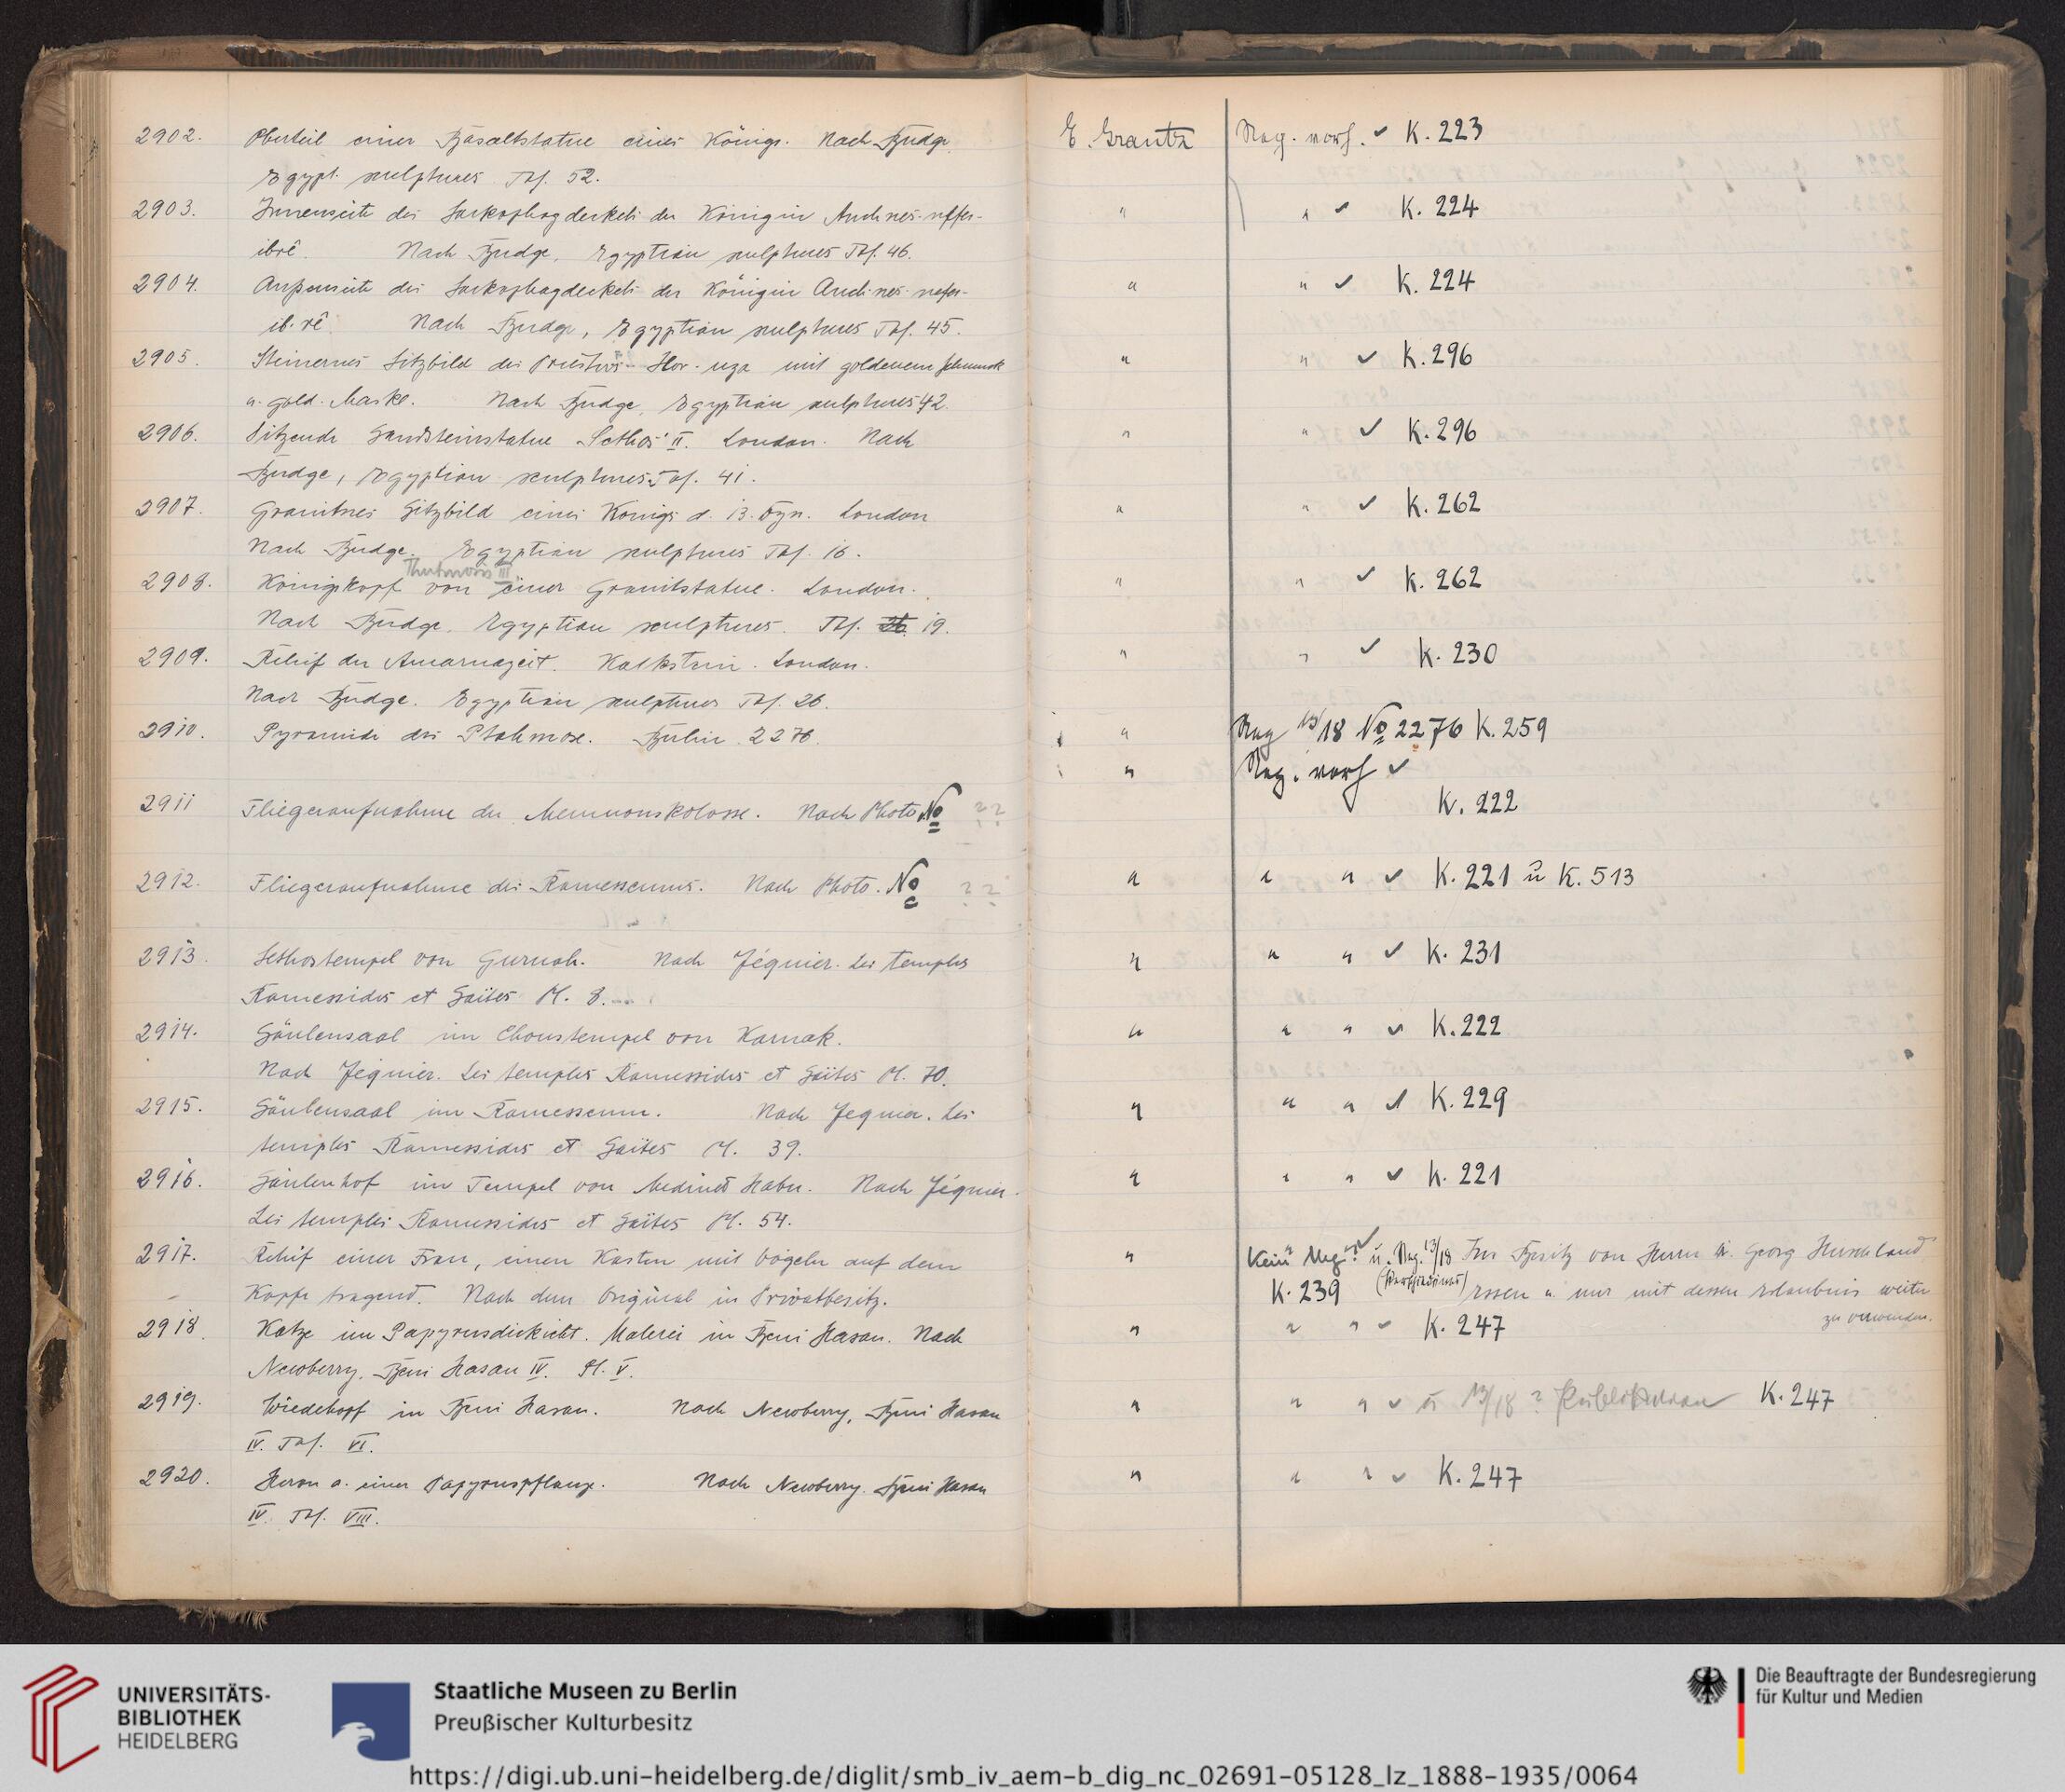 2902. Oberteil einer Basaltstatue eines Königs. Nach Budge E. Grantz Neg. vorh. ✓ K. 223
Egypt. sculptures Taf. 52.
2903. Innenseite des Sarkophagdeckels der Königin Anchnes-neffer- " " ✓ K. 224
ibrê. Nach Budge, Egyptian sculptures Taf. 46.
2904. Außenseite des Sarkophagdeckels der Königin Anch-nes-nefer- " " ✓ K. 224
ib-rê. Nach Budge, Egyptian sculptures Taf. 45.
2905. Steinernes Sitzbild des Priesters Hor-uza mit goldenem Schmuck " " ✓ K. 296
u. gold. Maske. Nach Budge, Egyptian sculptures 42.
2906. Sitzende Sandsteinstatue Sethos' II. London. Nach " " ✓ K. 296
Budge, Egyptian sculptures Taf. 41.
2907. Granitnes Sitzbild eines Königs d. 13. Dyn. London " " ✓ K. 262
Nach Budge. Egyptian sculptures Taf. 16.
Thutmosis III
2908. Königskopf von einer Granitstatue. London. " " ✓ K. 262
Nach Budge. Egyptian sculptures. Taf. 26 19.
2909. Relief der Amarnazeit. Kalkstein. London. " " ✓ K. 230
Nach Budge. Egyptian sculptures Taf. 26.
2910. Pyramide des Ptahmose. Berlin 2276. " Neg 13/18 No 2276 K. 259
" Neg. vorh ✓
2911 Fliegeraufnahme der Memnonskolosse. Nach Photo No ?? K. 222
2912. Fliegeraufnahme des Ramesseums. Nach Photo. No ?? " " " ✓ K. 221 u K. 513
2913. Sethostempel von Gurnah. Nach Jéquier. Les temples " " " ✓ K. 231
Ramessides et Saïtes Pl. 8.
2914. Säulensaal im Chonstempel von Karnak. " " " ✓ K. 222
Nach Jéquier. Les temples Ramessides et Saïtes Pl. 70.
2915. Säulensaal im Ramesseum. Nach Jequier. Les " " " ✓ K. 229
temples Ramessides et Saites Pl. 39.
2916. Säulenhof im Tempel von Medinet Habu. Nach Jéquier. " " " ✓ K. 221
Les temples Ramessides et Saïtes Pl. 54.
2917. Relief einer Frau, einen Kasten mit Vögeln auf dem " Kein Neg. u. Neg. 13/18 Im Besitz von Herrn Dr. Georg Hirschland
Kopfe tragend. Nach dem Original in Privatbesitz. K. 239 Essen u. nur mit dessen Erlaubnis weiter
zu verwenden.
2918. Katze im Papyrusdickicht. Malerei in Beni Hasan. Nach " " " ✓ K. 247
Newberry, Beni Hasan IV. Pl. V.
2919. Wiedehopf in Beni Hasan. Nach Newberry, Beni Hasan " " " ✓ u 13/18 ? Publikation K. 247
IV. Taf. VI.
2920. Heron a. einer Papyruspflanze. Nach Newberry. Beni Hasan " " " ✓ K. 247
IV. Taf. VIII.
UNIVERSITÄTS-
BIBLIOTHEK
HEIDELBERG
Staatliche Museen zu Berlin
Preußischer Kulturbesitz
Die Beauftragte der Bundesregierung
für Kultur und Medien
https://digi.ub.uni-heidelberg.de/diglit/smb_iv_aem-b_dig_nc_02691-05128_lz_1888-1935/0064